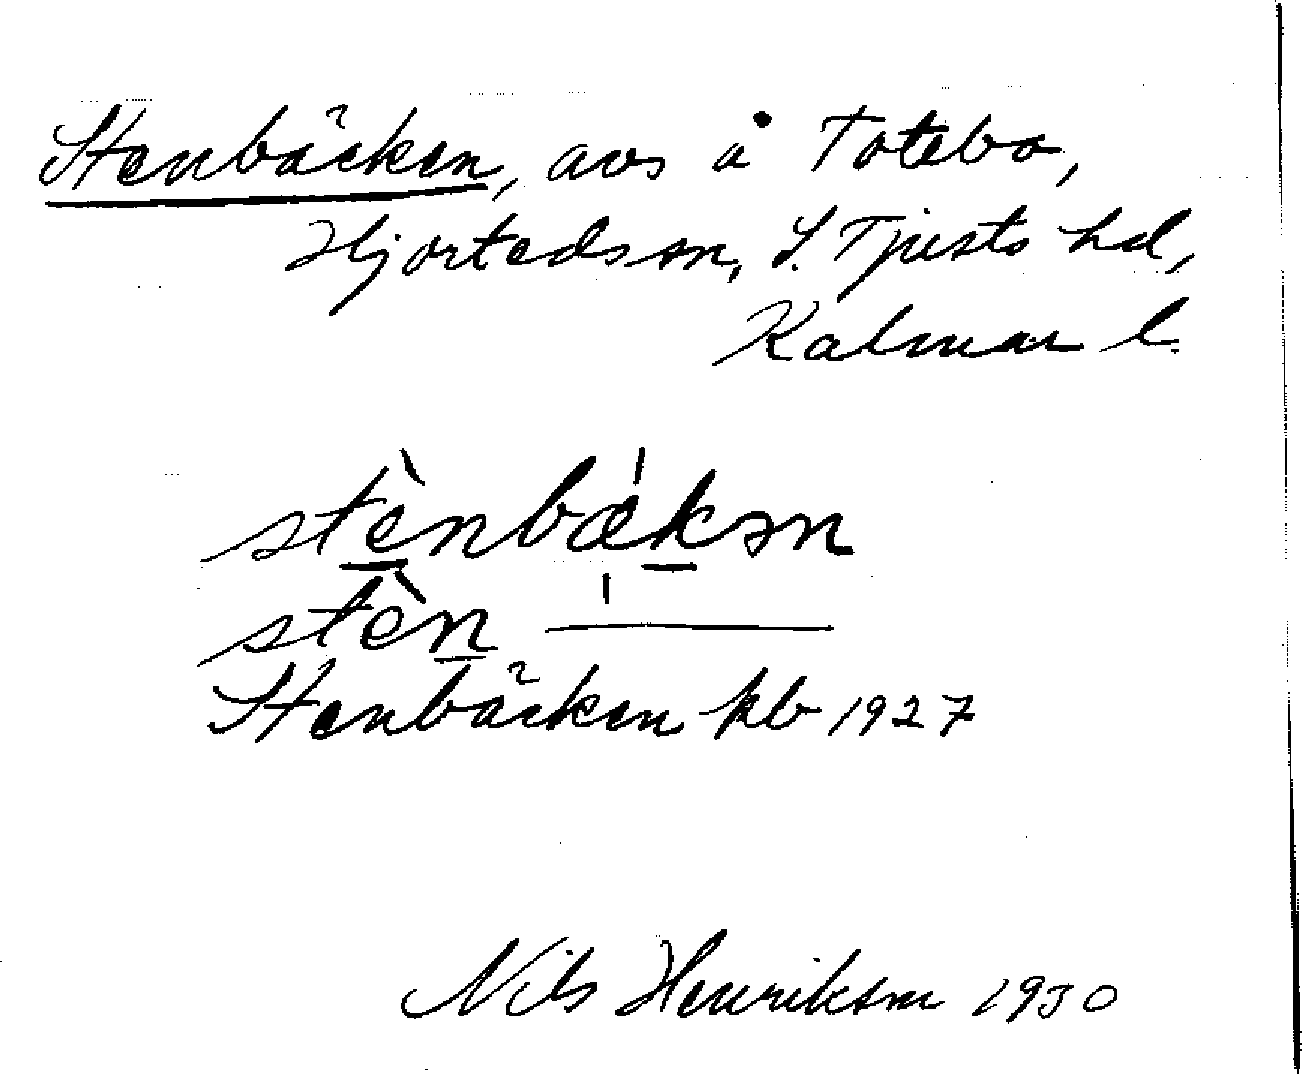 Stenbäcken, avs å Totebo,
Hjorteds sn, S. Tjusts hd,
Kalmar l.
stè̱nbæ̍ḵən
stèṉ –––––
Stenbäcken kb 1927
Nils Henriksson 1930